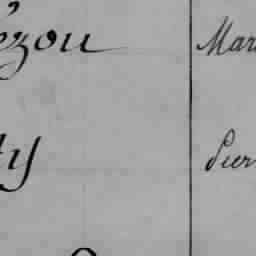 ézou Mar
ty Pier